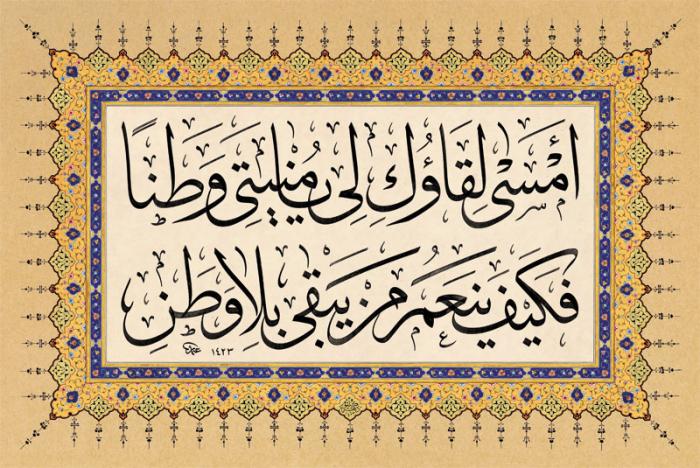 امْسَىٰ لِقَاؤُكَ لِى مُنيَتِى وَطَنًا
فَكَيْفَ يَنعَمُ مَنْ يَبْقَى بِلَا وَطَنِ
١٤٢٣